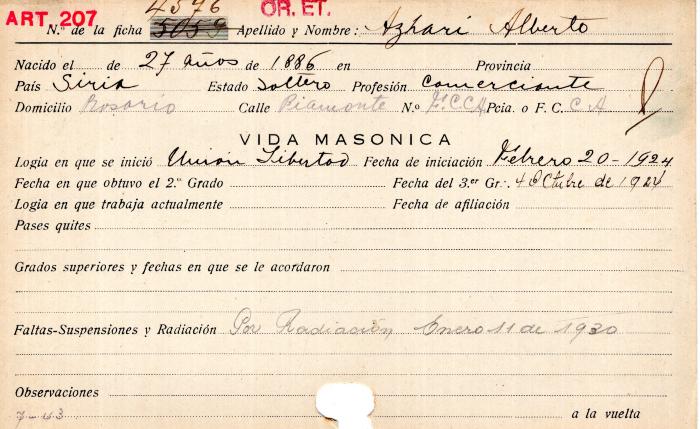 4576 OR. ET.
ART. 207
N.º de la ficha 5059 Apellido y Nombre: Azhari Alberto
Nacido el de 27 años de 1886 en Provincia
País Siria Estado Soltero Profesión Comerciante
Domicilio Rosario Calle Piamonte N.º F.C.C.A Pcia. o F. C. C.A
VIDA MASONICA
Logia en que se inició Unión Libertad Fecha de iniciación Febrero 20-1924
Fecha en que obtuvo el 2.º Grado Fecha del 3.er Gr.: 4 Octubre de 1924
Logia en que trabaja actualmente Fecha de afiliación
Pases quites
Grados superiores y fechas en que se le acordaron
Faltas-Suspensiones y Radiación Por Radiación, Enero 11 de 1930
Observaciones
7-43 a la vuelta